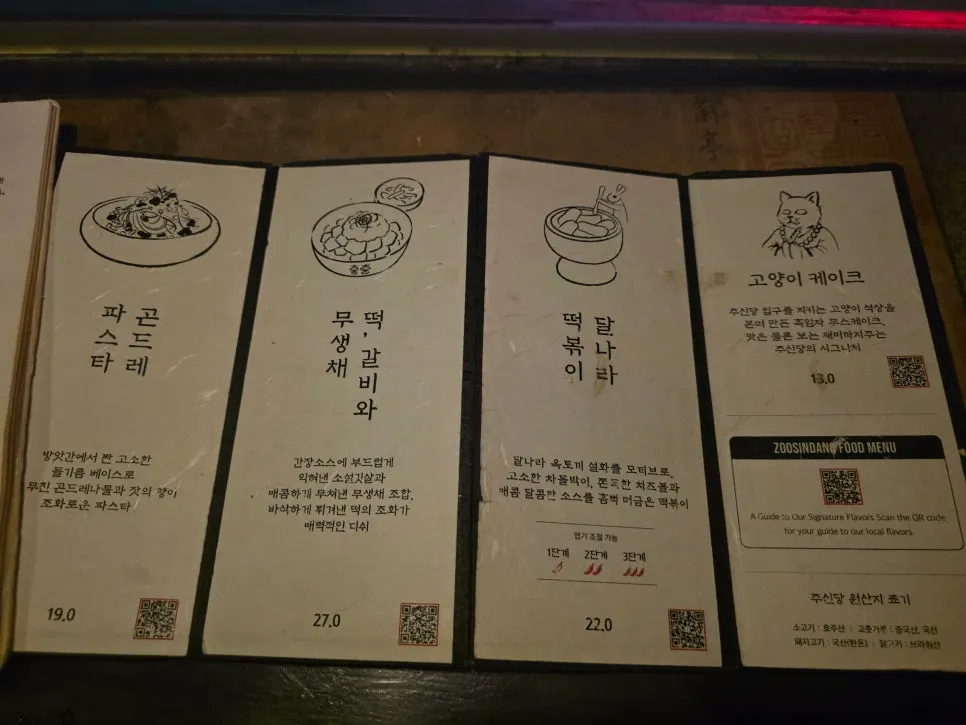 곤드레
파스타
방앗간에서 짠 고소한
들기름 베이스로
무친 곤드레나물과 잣의 향이
조화로운 파스타
19.0
출출
떡,갈비와
무생채
간장소스에 부드럽게
익혀낸 소윗갓살과
매콤하게 무쳐낸 무생채 조합,
바삭하게 튀겨낸 떡의 조화가
매력적인 디쉬
27.0
달나라
떡볶이
달나라 옥토끼 설화를 모티브로,
고소한 차돌박이, 쫀득한 치즈볼과
매콤 달콤한 소스를 흠뻑 머금은 떡볶이
맵기 조절 가능
1단계 2단계 3단계
22.0
고양이 케이크
주신당 입구를 지키는 고양이 석상을
본떠 만든 흑임자 무스케이크,
맛은 물론 보는 재미까지주는
주신당의 시그니처
13.0
ZOOSINDANG FOOD MENU
A Guide to Our Signature Flavors Scan the QR code
for your guide to our local flavors.
주신당 원산지 표기
소고기 : 호주산 | 고춧가루 : 중국산, 국산
돼지고기 : 국산(한돈) | 닭고기 : 브라질산
蘭亭